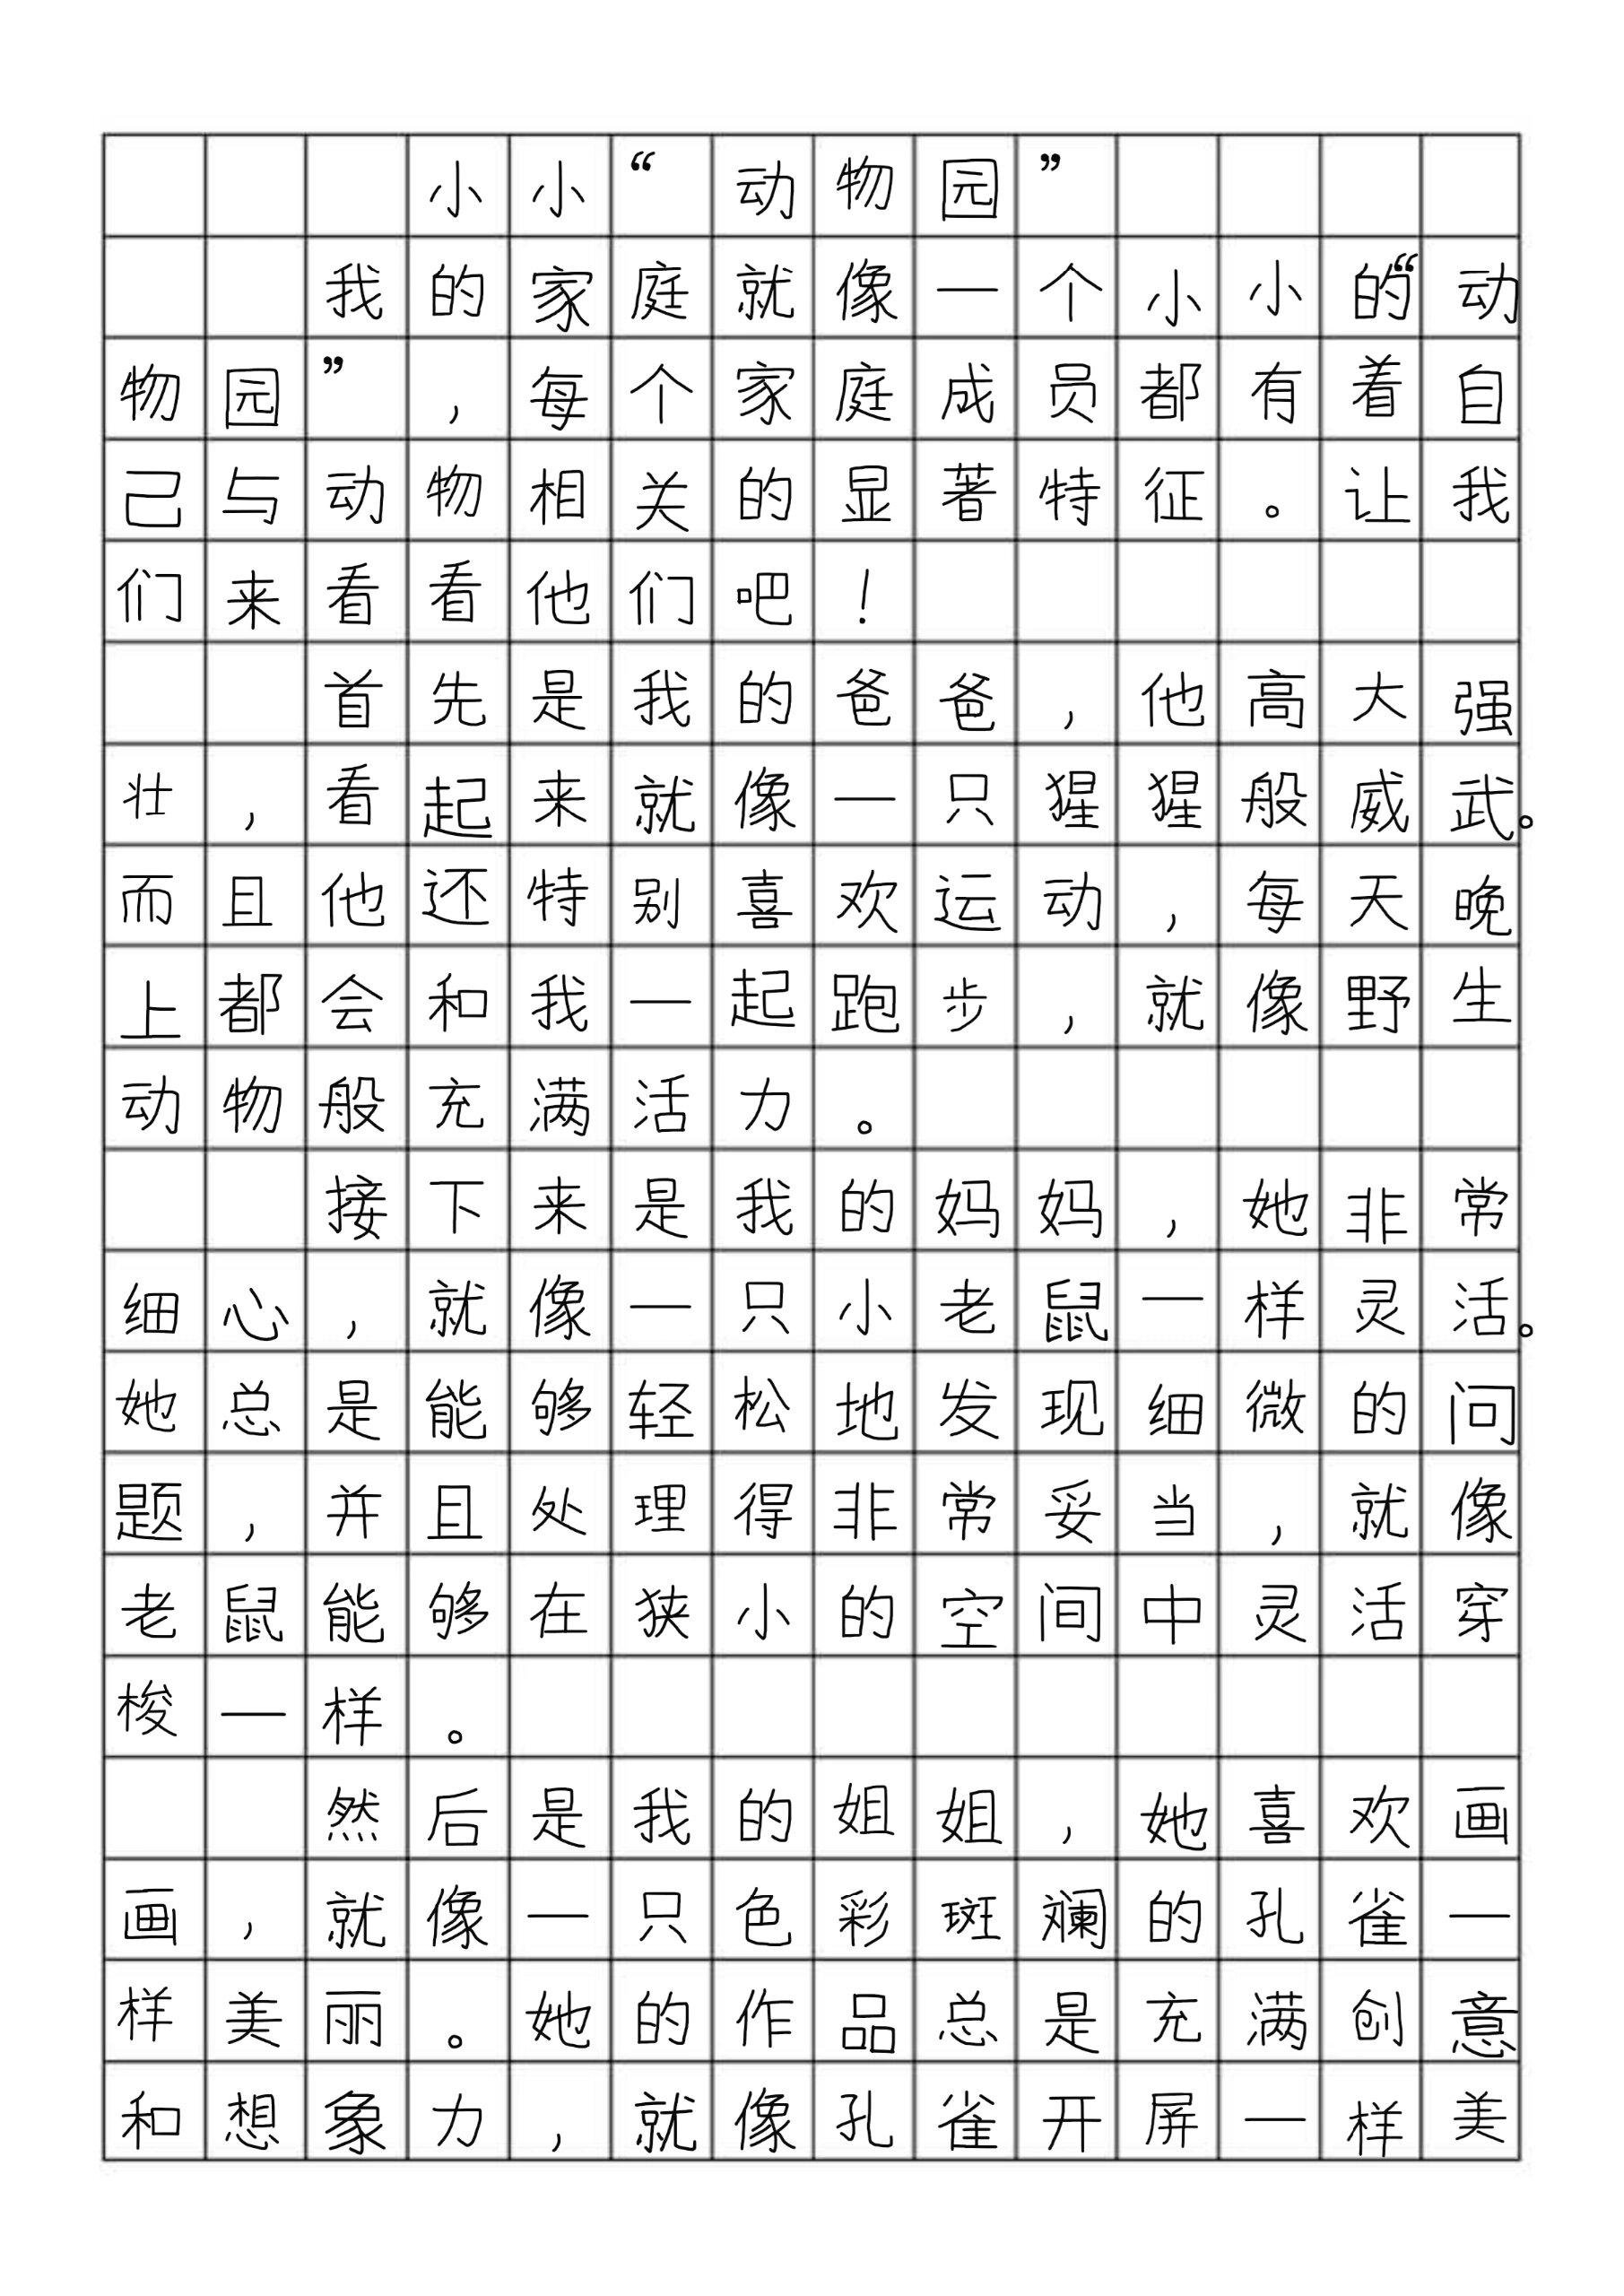 小小“动物园”
我的家庭就像一个小小的“动
物园”，每个家庭成员都有着自
己与动物相关的显著特征。让我
们来看看他们吧！
首先是我的爸爸，他高大强
壮，看起来就像一只猩猩般威武。
而且他还特别喜欢运动，每天晚
上都会和我一起跑步，就像野生
动物般充满活力。
接下来是我的妈妈，她非常
细心，就像一只小老鼠一样灵活。
她总是能够轻松地发现细微的问
题，并且处理得非常妥当，就像
老鼠能够在狭小的空间中灵活穿
梭一样。
然后是我的姐姐，她喜欢画
画，就像一只色彩斑斓的孔雀一
样美丽。她的作品总是充满创意
和想象力，就像孔雀开屏一样美